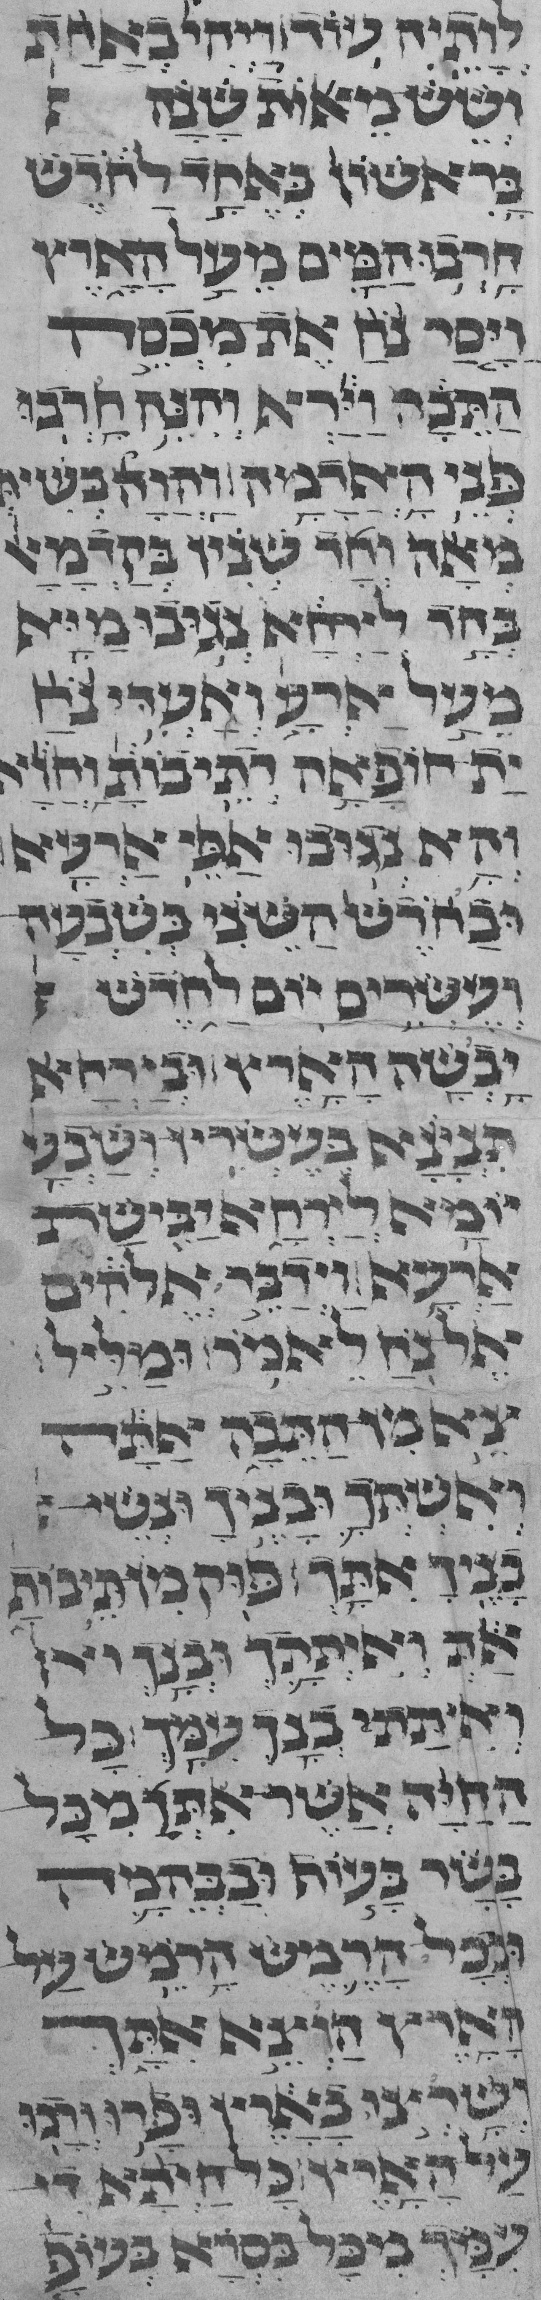 לותיה עוד ויהי באחת
ושש מאות שנה
בראשון באחד לחדש
חרבו המים מעל הארץ
ויסר נח את מכסה
התבה וירא והנה חרבו
פני האדמה והוה בשית
מאה וחד שנין בקדמא
בחד לירחא נגובו מיא
מעל ארעא ואעדי נח
ית חופאה דתיבותא וחזא
והא נגובו אפי ארעא
ובחדש השני בשבעה
ועשרים יום לחדש
יבשה הארץ ובירחא
תנינא בעשרין ושבע
יומא לירחא יבישת
ארעא וידבר אלהים
אל נח לאמר ומליל
צא מן התבה אתה
ואשתך ובניך ונשי
בניך אתך פוק מן תיבותא
את ואיתתך ובנך
ואיתתי בנך עמך כל
החיה אשר אתך מכל
בשר בעוף ובבהמה
ובכל הרמש הרמש על
הארץ הוצא אתך
ושרצו בארץ ופרו ורבו
על הארץ כל חיתא די
עמך מיכל בסרא בעופא